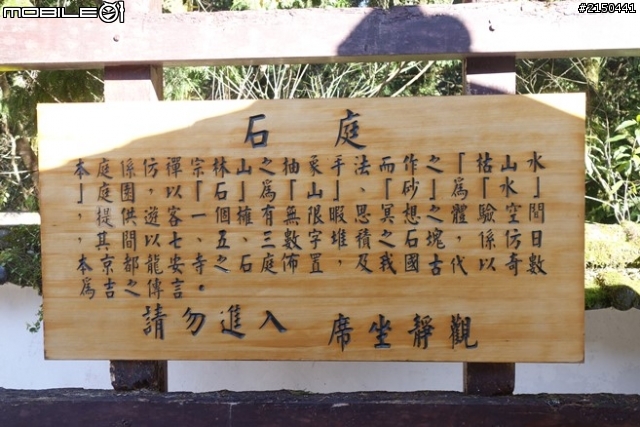 mobile01
#2150441
石庭
本庭係仿禪宗林山之抽象手法而作之「枯山水
」庭園,以「石」為山「山」、「砂」為「水」
,提供遊客一個擁有無限暇思、冥想之體驗空聞
,其間以七、五、三數字堆積之石塊,係仿日
本京都龍安寺之石庭佈置,及我國古代以奇數
為吉之傳言。
請勿進入 席坐靜觀